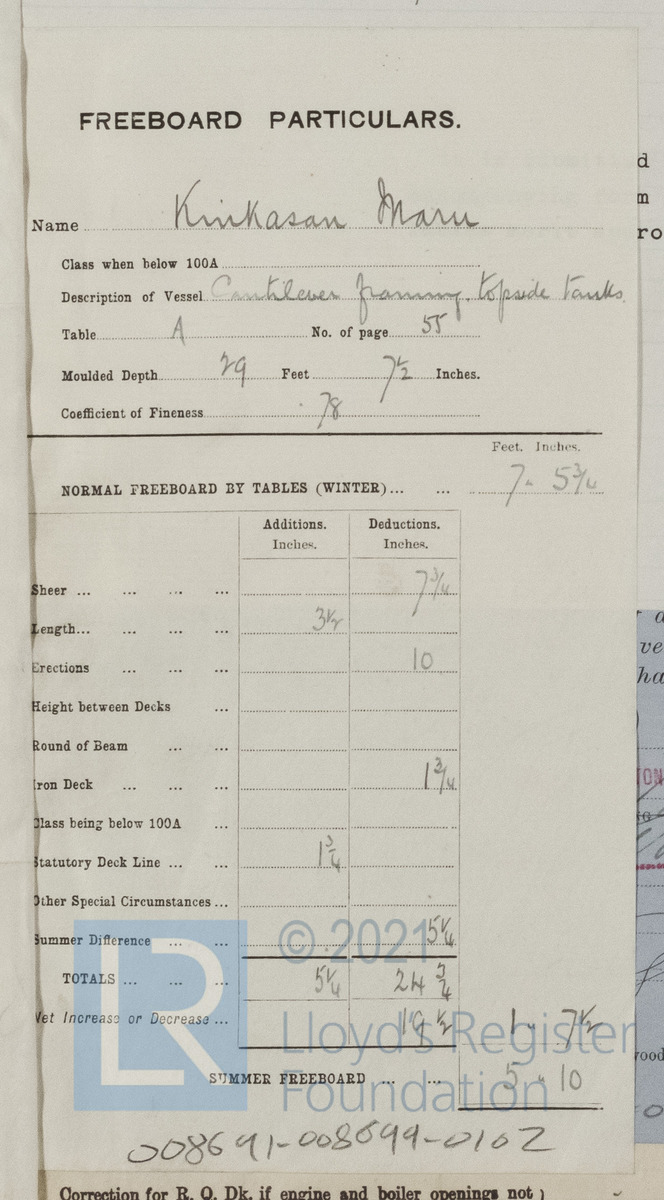 FREEBOARD PARTICULARS.
Name Kinkasan Maru
Class when below 100A
Description of Vessel Cantilever framing. topside tanks
Table A No. of page 55
Moulded Depth 29 Feet 7½ Inches.
Coefficient of Fineness .78
Feet. Inches.
NORMAL FREEBOARD BY TABLES (WINTER)... ... 7 - 5¾
Additions. Deductions.
Inches. Inches.
Sheer ... ... ... ... 7¾
Length... ... ... ... 3½
Erections ... ... ... 10
Height between Decks ...
Round of Beam ... ...
Iron Deck ... ... ... 1¾
Class being below 100A ...
Statutory Deck Line ... ... 1¾
Other Special Circumstances ...
Summer Difference ... ... 5¼
TOTALS ... ... ... 5¼ 24¾
Net Increase or Decrease ... 19½ 1 - 7½
SUMMER FREEBOARD ... ... 5 - 10
© 2021
LR Lloyd's Register
Foundation
008691-008699-0102
Correction for R. Q. Dk. if engine and boiler openings not